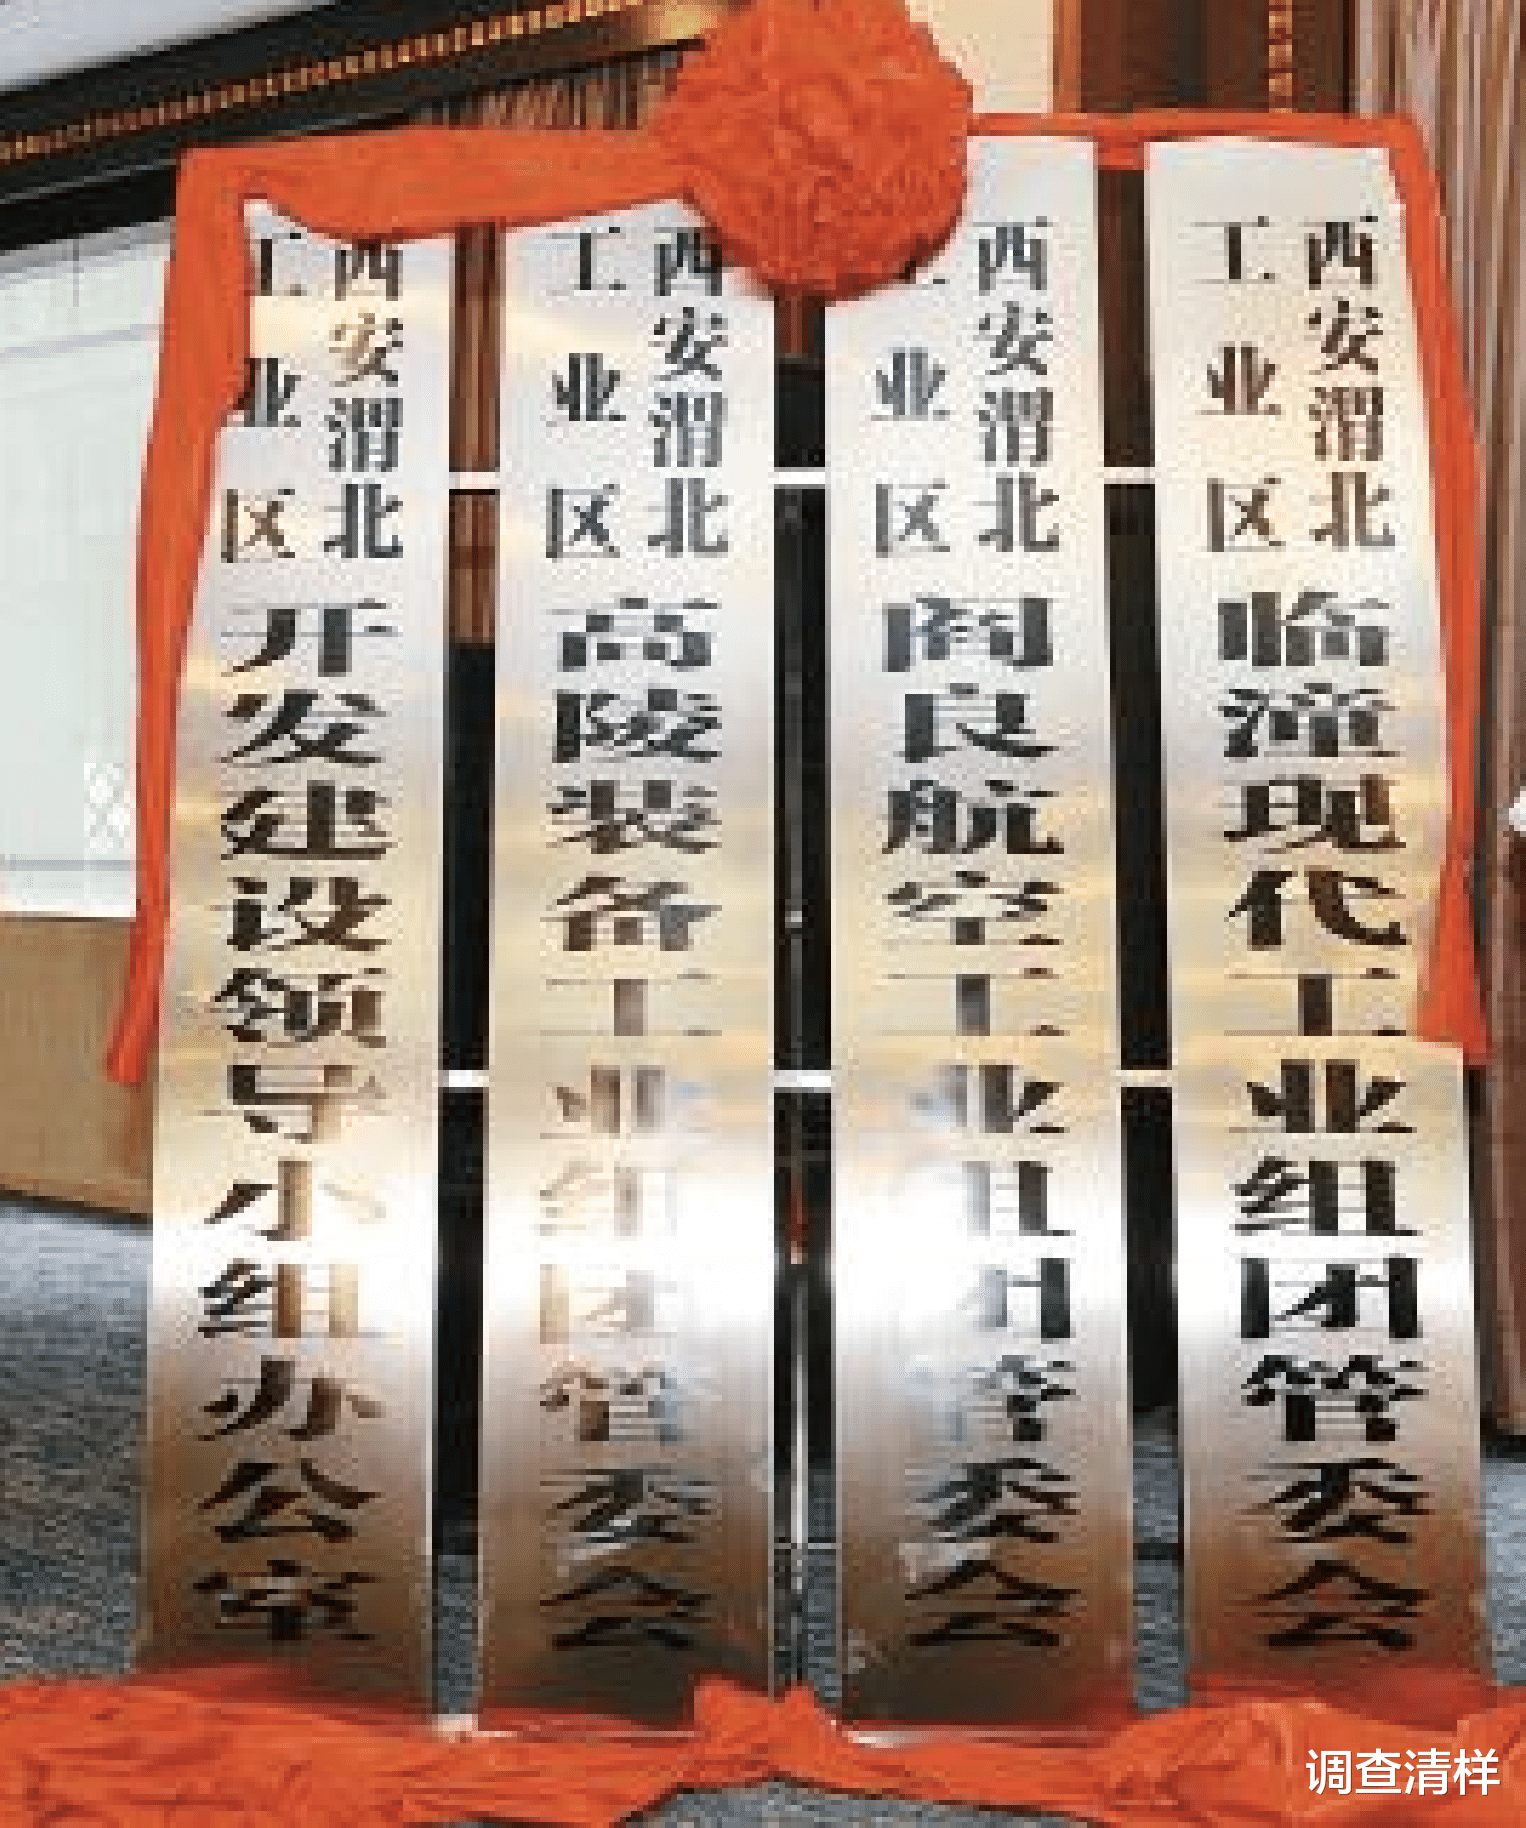 西安渭北
工业区
开发建设领导小组办公室
西安渭北
工业区
高陵装备工业组团管委会
西安渭北
业区
阎良航空工业组团管委会
西安渭北
工业区
临潼现代工业组团管委会
调查清样